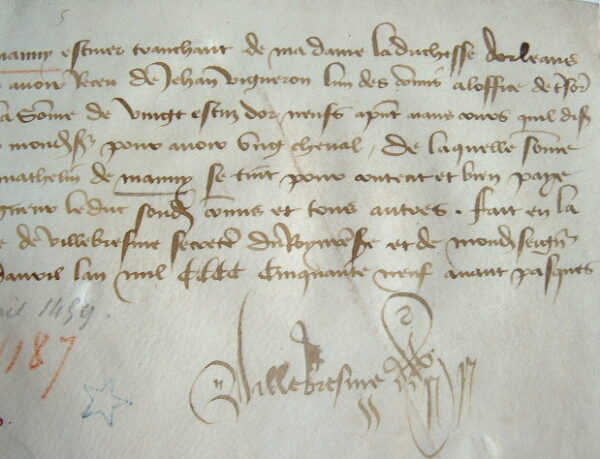 5
manny escuier tranchant de madame la duchesse dorleans
avoir Receu de Jehan vigneron lun des commis a loffice de
somme de vingt escuz dor neufs aiant cours quil
pour avoir ung cheval. De laquelle somme
mathelin de manny se tint pour content et bien paye
le duc commis et tous autres. fait en la
de villebresme secretere du Roy et de
davril lan mil CCCC cinquante neuf avant pasques
1459.
187
villebresme